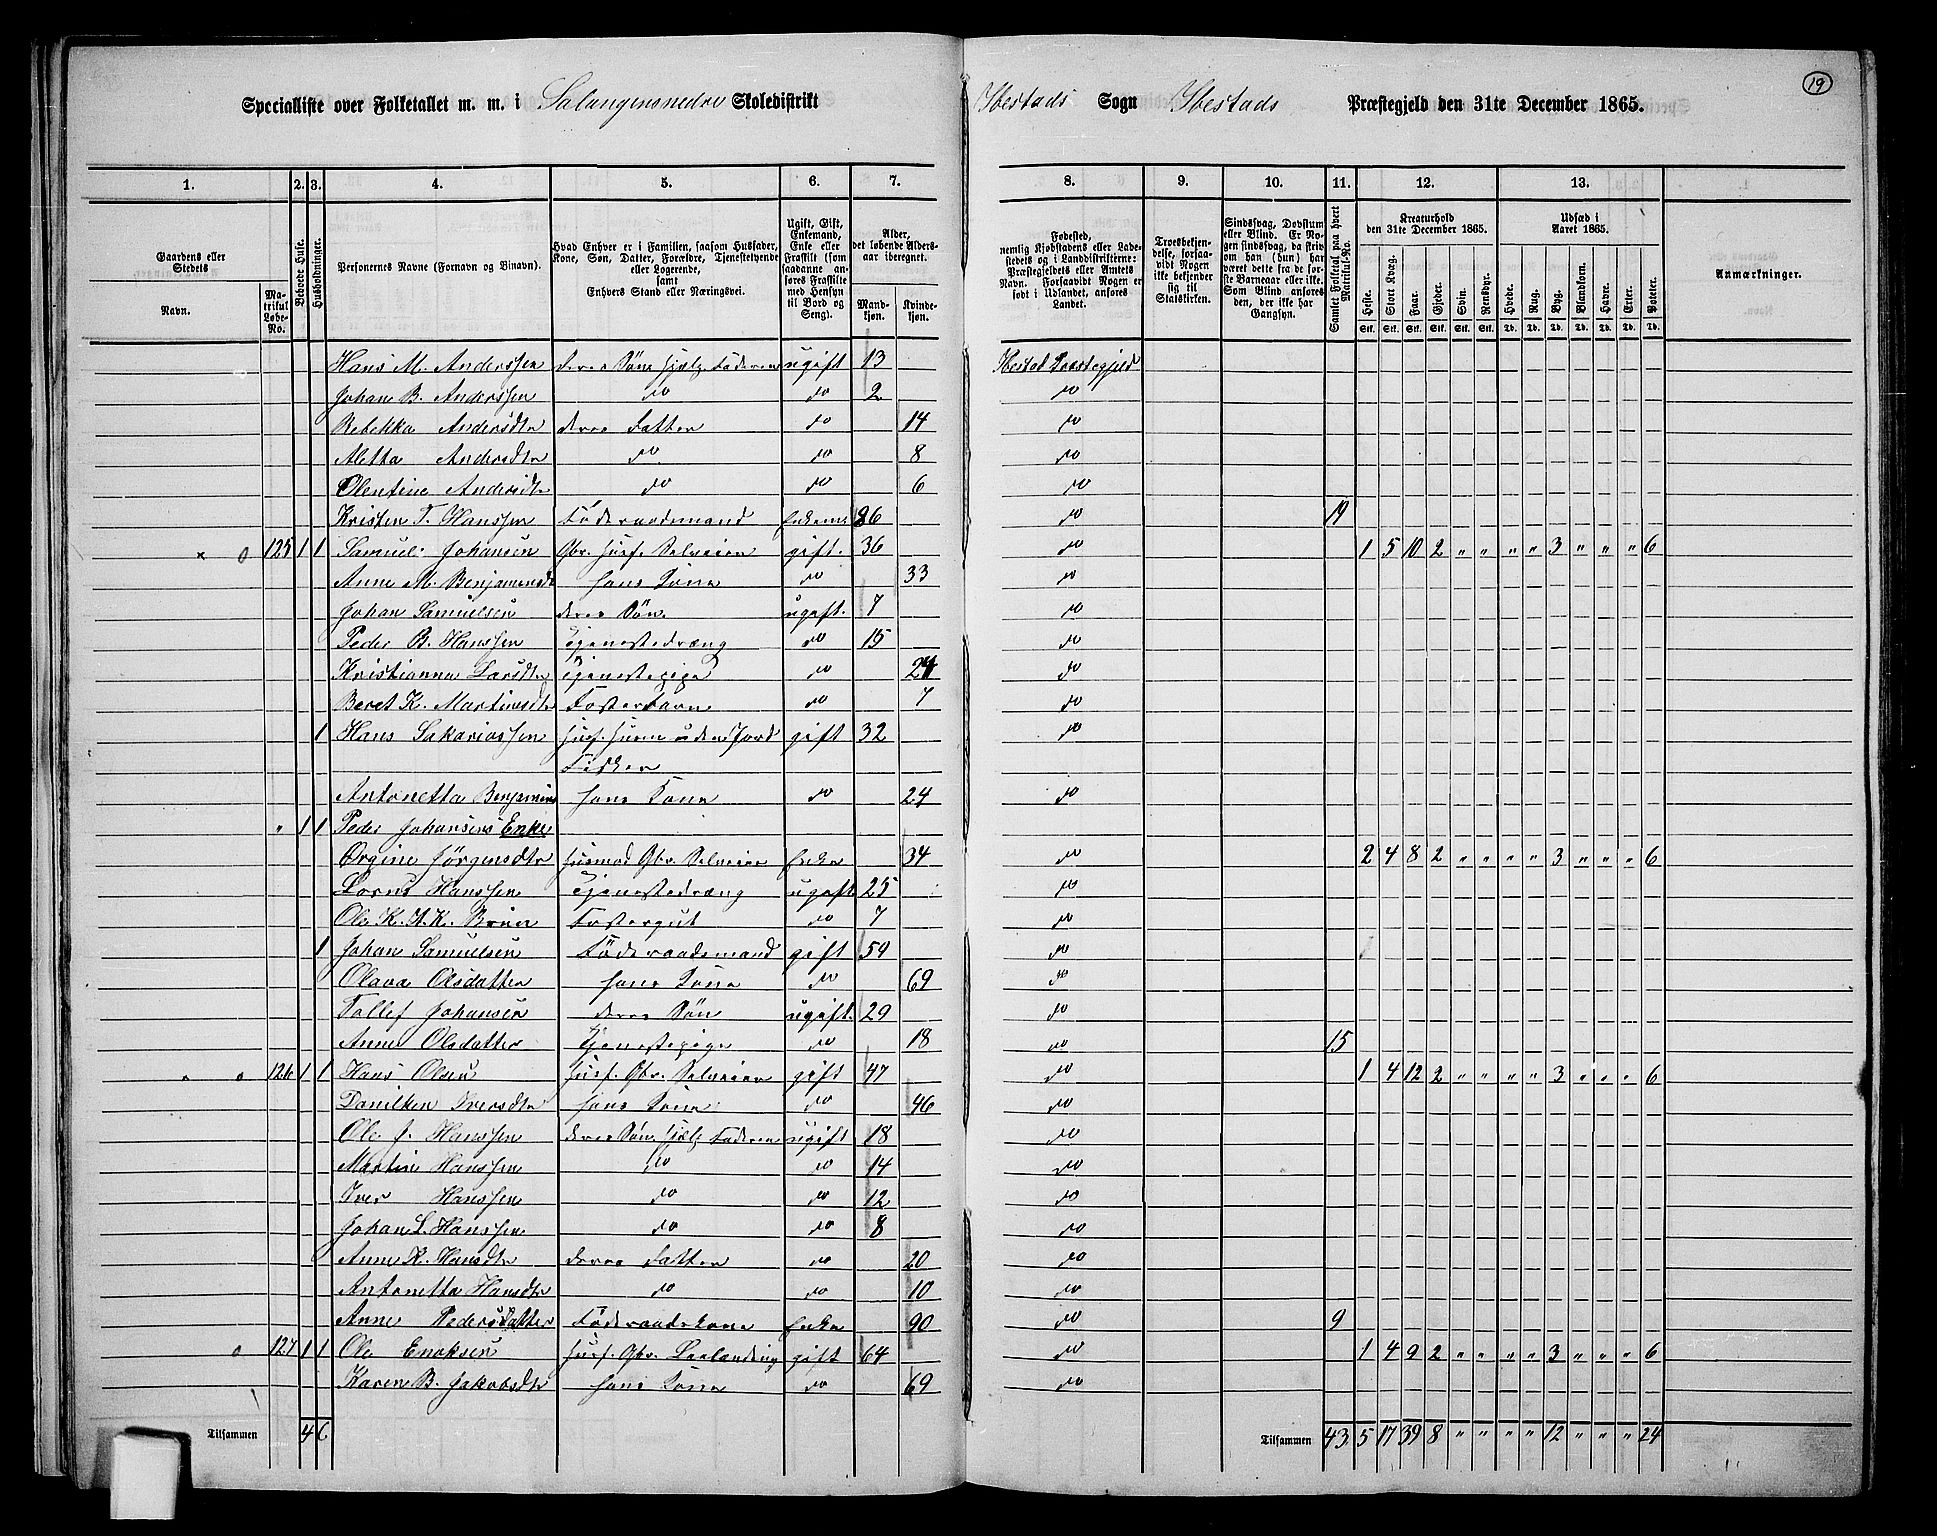 19
Specialliste over Folketallet m. m. i Salangensnedre Skoledistrikt Ibestads Sogn Ibestads Præstegjeld den 31te December 1865.
1. 2. 3. 4. 5. 6. 7. 8. 9. 10. 11. 12. 13.
Gaardens eller Stedets
Navn.
Matrikul Løbe-No.
Beboede Huse.
Husholdninger.
Personernes Navne (Fornavn og Binavn).
Hvad Enhver er i Familien, saasom Husfader, Kone, Søn, Datter, Forældre, Tjenestetyende eller Logerende, samt Enhvers Stand eller Næringsvei.
Ugift, Gift, Enkemand, Enke eller Fraskilt (som saadanne anføres Fraskilte med Hensyn til Bord og Seng).
Alder, det løbende Aldersaar iberegnet.
Mandkjøn.
Kvindekjøn.
Fødested, nemlig Kjøbstadens eller Ladestedets og i Landdistrikterne: Præstegjeldets eller Amtets Navn. Forsaavidt Nogen er født i Udlandet, anføres Landet.
Troesbekjendelse, forsaavidt Nogen ikke bekjender sig til Statskirken.
Sindssvag, Døvstum eller Blind. Er Nogen sindssvag, da skrives om han (hun) har været dette fra de første Barneaar eller ikke. Som Blind anføres den, der ikke har Gangsyn.
Samlet Folketal paa hvert Matrikul-No.
Kreaturhold den 31te December 1865.
Heste. Stort Kvæg. Faar. Gjeder. Svin. Rensdyr.
Stk. Stk. Stk. Stk. Stk. Stk.
Udsæd i Aaret 1865.
Hvede. Rug. Byg. Blandkorn. Havre. Erter. Poteter.
Td. Td. Td. Td. Td. Td. Td.
Anmærkninger.
Hans M. Anderssen deres Søn hjelp Faderen ugift 13 Ibestad Præstegjeld
Johan B. Anderssen do do 2 do
Rebekka Andersdtr deres Datter do 14 do
Aletta Andersdtr do do 8 do
Olentine Andersdtr do do 6 do
Kristen T. Hanssen Föderaadsmand Enkem 86 do 19
× o 125 1 1 Samuel Johansen Gbr. Husf. Selveier gift. 36 do 1 5 10 2 " " " " 3 " " " 6
Anne M. Benjaminsdt hans Kone do 33 do
Johan Samuelsen deres Søn ugift. 7 do
Peder B. Hanssen Tjenestedræng do 15 do
Kristianna Larsdtr Tjenestepige do 24 do
Beret K. Martinsdtr Fosterbarn do 7 do
1 Hans Sakariassen Husf. Husm uden Jord gift 32 do
Fisker
Antonetta Benjamins hans Kone do 24 do
" 1 1 Peder Johansens Enke
Orgine Jörgensdtr Husmod Gbr. Selveier Enke 34 do 2 4 8 2 " " " " 3 " " " 6
Hanssen Tjenestedræng ugift 25 do
Ole K. A. K. Bruun Fostergut do 7 do
1 Johan Samuelsen Föderaadsmand gift 54 do
Olava Olsdatter hans Kone do 69 do
Tollef Johansen deres Søn ugift. 29 do
Anne Olsdatter Tjenestepige do 18 do 15
" o 126 1 1 Hans Olsen Husf. Gbr. Selveier gift 47 do 1 4 12 2 " " " " 3 " " " 6
Danilken Iversdtr hans Kone do 46 do
Ole J. Hanssen deres Søn hjelp Faderen ugift 18 do
Martin Hanssen do do 14 do
Iver Hanssen do do 12 do
Johan L. Hanssen do do 8 do
Anne K. Hansdtr deres Datter do 20 do
Antonetta Hansdtr do do 10 do
Anne Pedersdatter Föderaadskone Enke 90 do 9
o 127 1 1 Ole Enoksen Husf. Gbr. Leilending gift 64 do 1 4 9 2 " " " " 3 " " " 6
Karen B. Jakobsdtr hans Kone do 69 do
Tilsammen 4 6 Tilsammen 43 5 17 39 8 " " " " 12 " " " 24